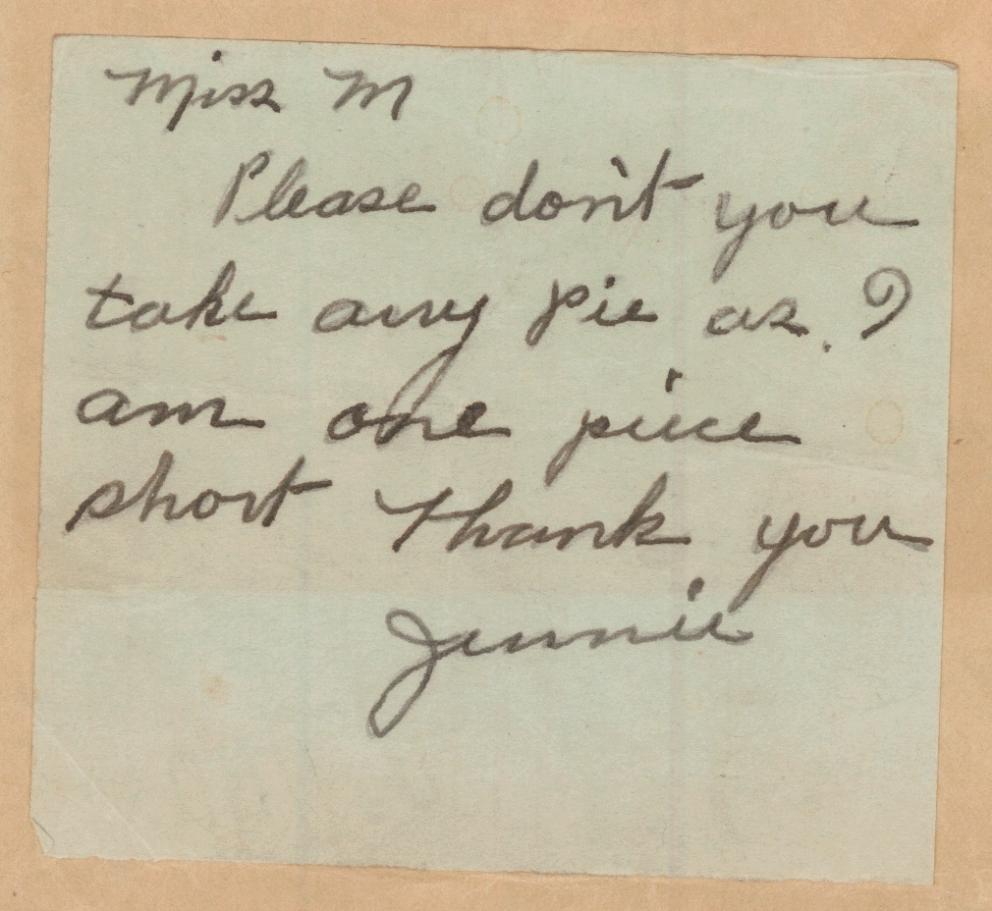 Miss M
Please don't you
take any pie as I
am one piece
short Thank you
Jennie